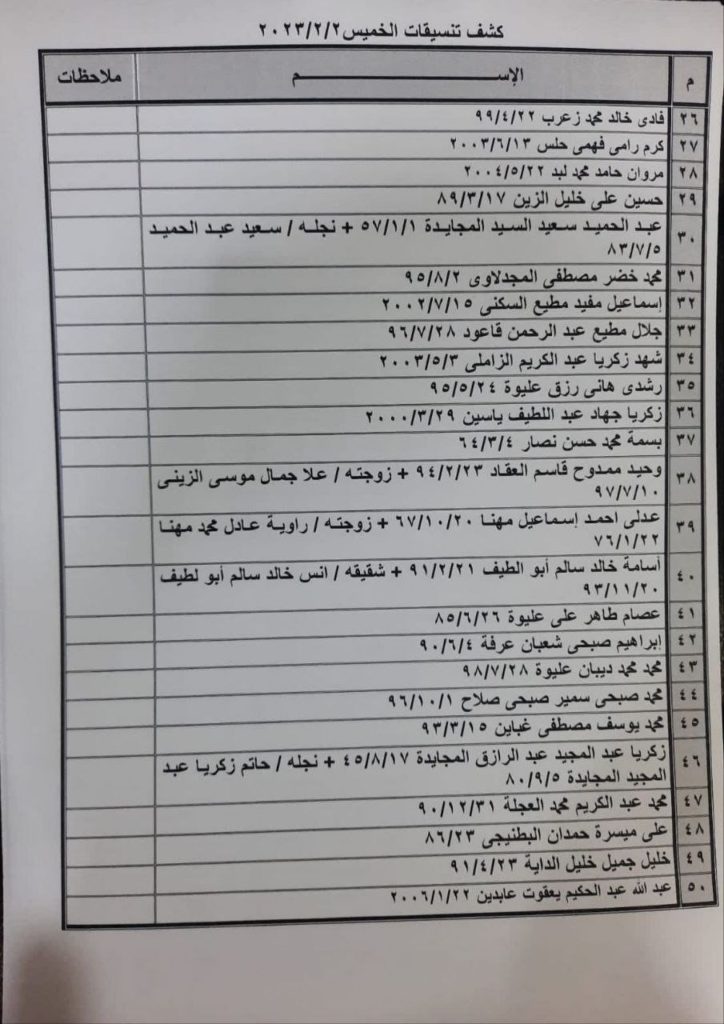 كشف تنسيقات الخميس ٢٠٢٣/٢/٢
م الإســـــــم ملاحظات
٢٦ فادى خالد محمد زعرب ٩٩/٤/٢٢
٢٧ كرم رامى فهمى حلس ٢٠٠٣/٦/١٣
٢٨ مروان حامد محمد لبد ٢٠٠٤/٥/٢٢
٢٩ حسين على خليل الزين ٨٩/٣/١٧
٣٠ عبد الحميد سعيد السيد المجايدة ٥٧/١/١ + نجله / سعيد عبد الحميد
٨٣/٧/٥
٣١ محمد خضر مصطفى المجدلاوى ٩٥/٨/٢
٣٢ إسماعيل مفيد مطيع السكنى ٢٠٠٢/٧/١٥
٣٣ جلال مطيع عبد الرحمن قاعود ٩٦/٧/٢٨
٣٤ شهد زكريا عبد الكريم الزاملى ٢٠٠٣/٥/٣
٣٥ رشدى هانى رزق عليوة ٩٥/٥/٢٤
٣٦ زكريا جهاد عبد اللطيف ياسين ٢٠٠٠/٣/٢٩
٣٧ بسمة محمد حسن نصار ٦٤/٣/٤
٣٨ وحيد ممدوح قاسم العقاد ٩٤/٢/٢٣ + زوجته / علا جمال موسى الزينى
٩٧/٧/١٠
٣٩ عدلى احمد إسماعيل مهنا ٦٧/١٠/٢٠ + زوجته / راوية عادل محمد مهنا
٧٦/١/٢٢
٤٠ أسامة خالد سالم أبو الطيف ٩١/٢/٢١ + شقيقه / انس خالد سالم أبو لطيف
٩٣/١١/٢٠
٤١ عصام طاهر على عليوة ٨٥/٦/٢٦
٤٢ إبراهيم صبحى شعبان عرفة ٩٠/٦/٤
٤٣ محمد محمد ديبان عليوة ٩٨/٧/٢٨
٤٤ محمد صبحى سمير صبحى صلاح ٩٦/١٠/١
٤٥ محمد يوسف مصطفى غباين ٩٣/٣/١٥
٤٦ زكريا عبد المجيد عبد الرازق المجايدة ٤٥/٨/١٧ + نجله / حاتم زكريا عبد
المجيد المجايدة ٨٠/٩/٥
٤٧ محمد عبد الكريم محمد العجلة ٩٠/١٢/٣١
٤٨ على ميسرة حمدان البطنيجى ٨٦/٢٣
٤٩ خليل جميل خليل الداية ٩١/٤/٢٣
٥٠ عبد الله عبد الحكيم يعقوت عابدين ٢٠٠٦/١/٢٢